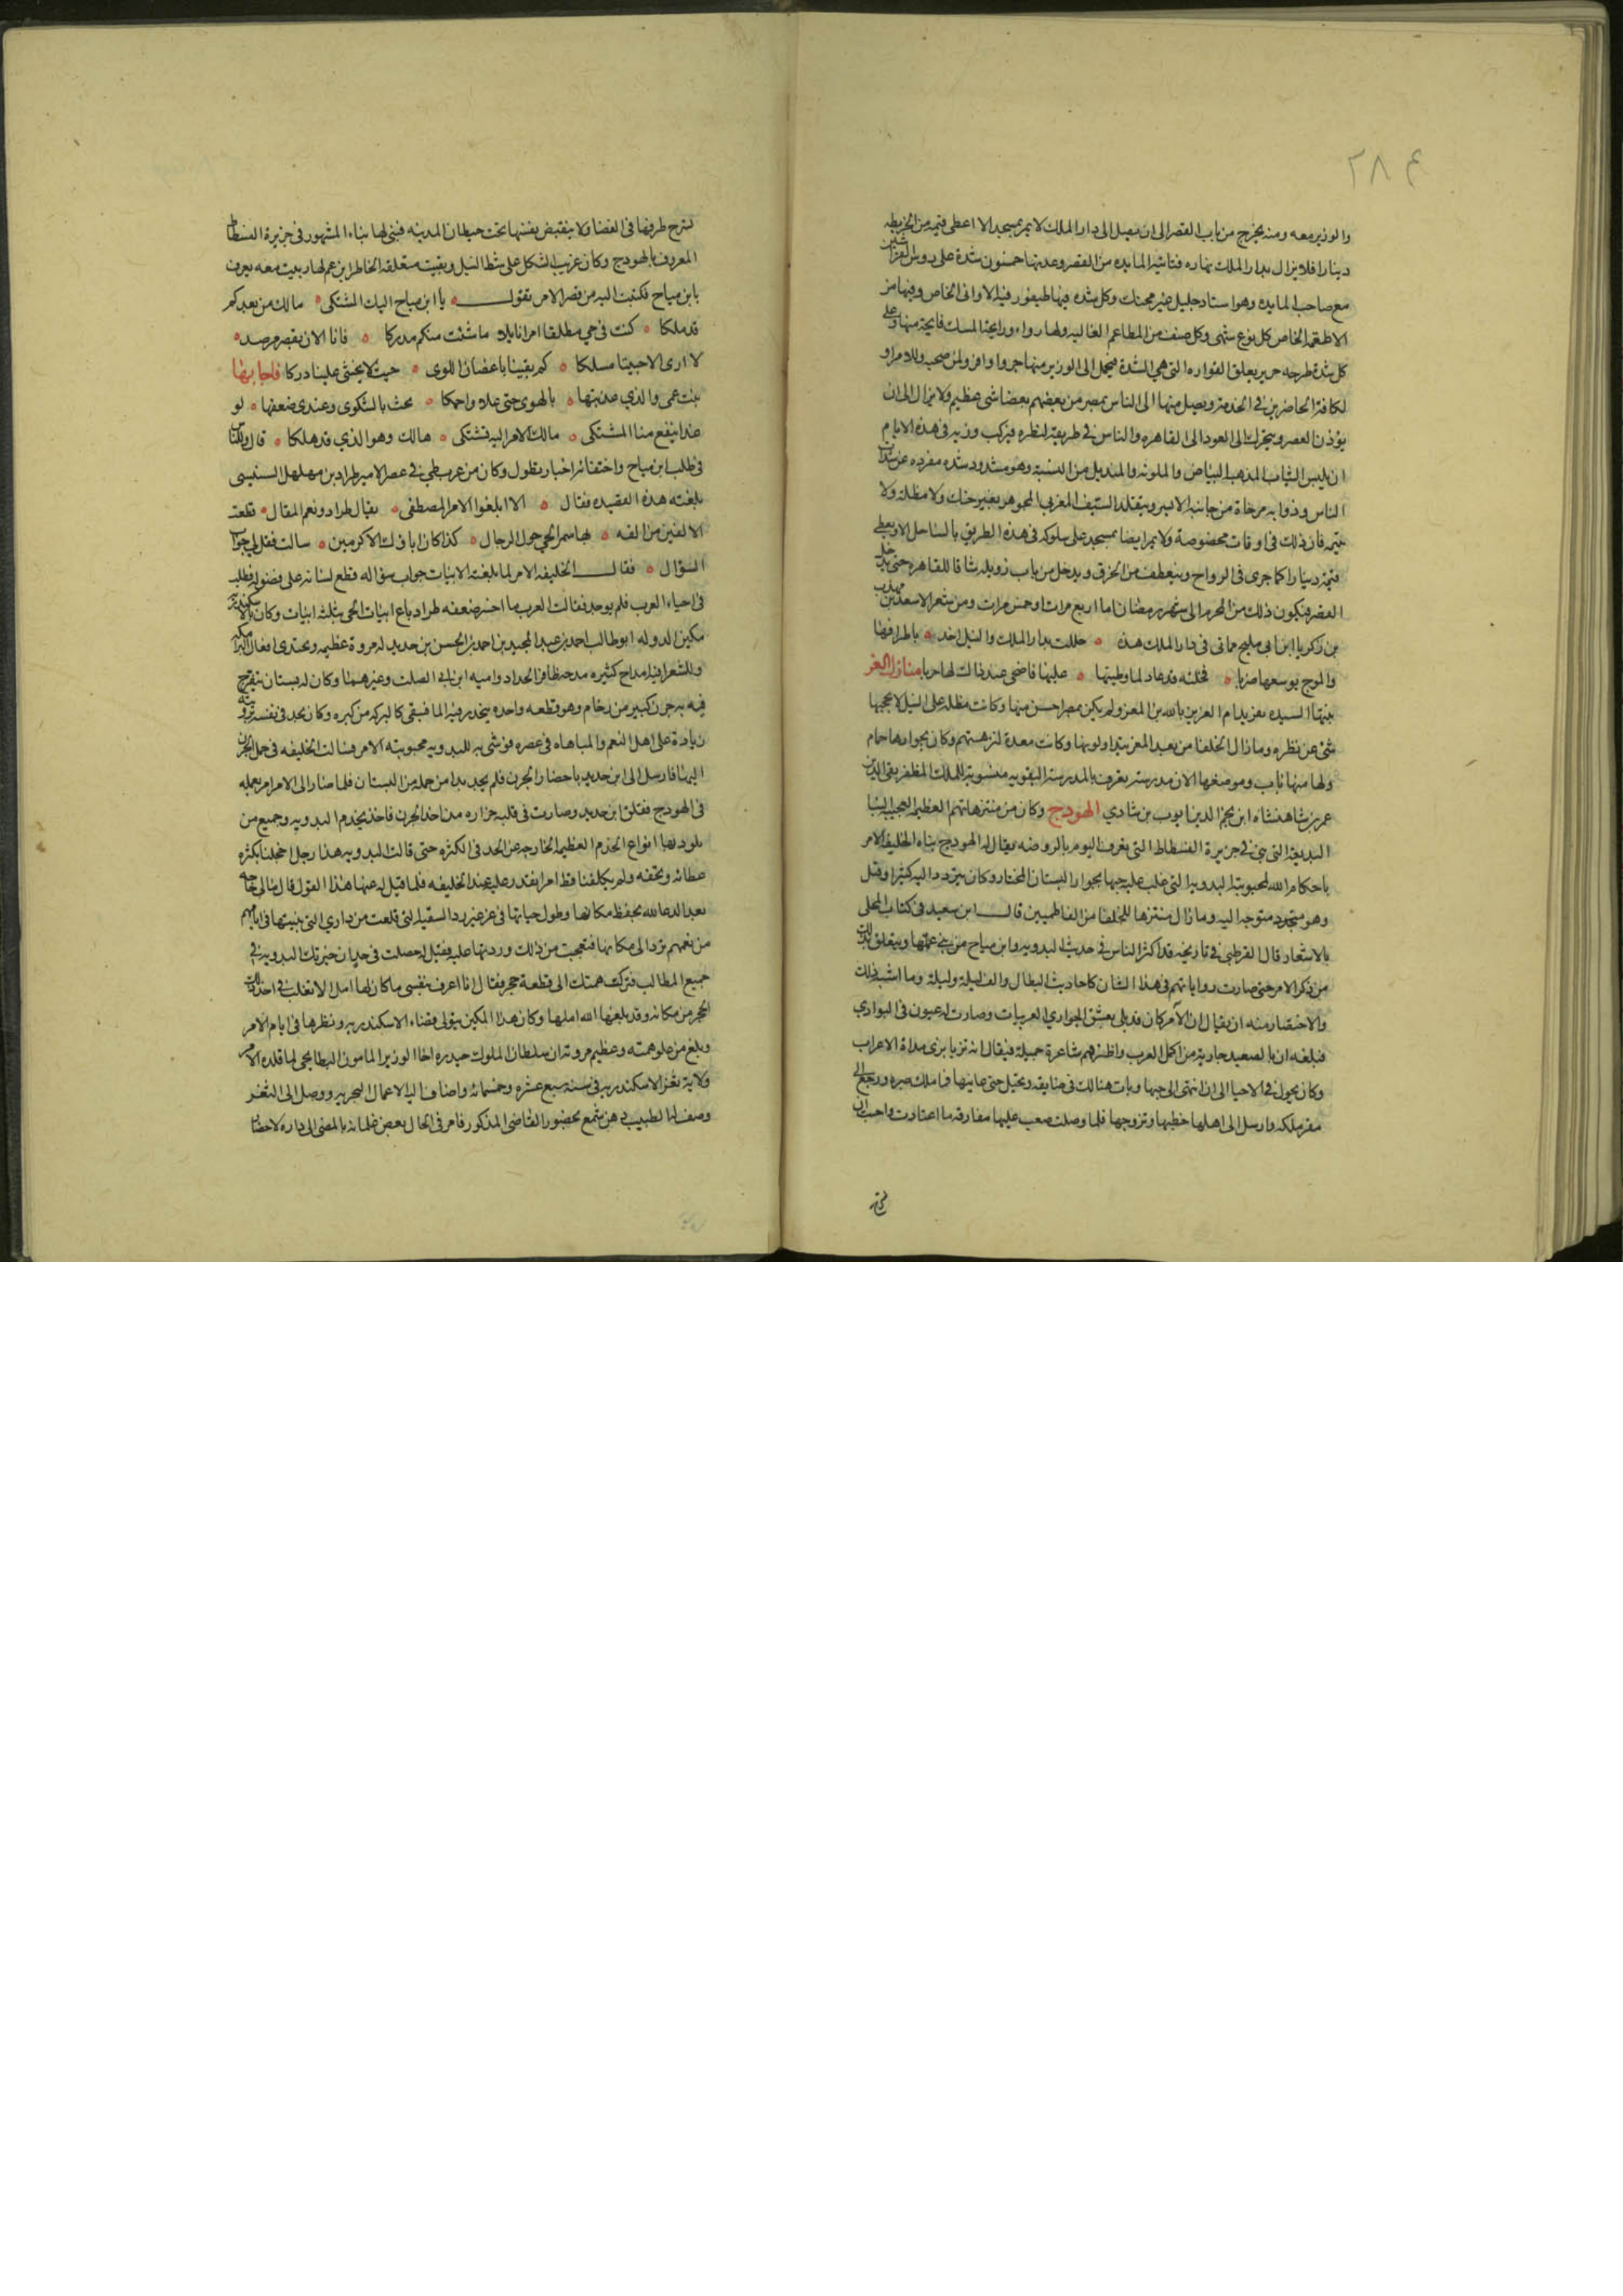 ٢٨٤
والوزير معه ومنه يخرج من باب القصر الى ان يصل الى دار الملك لا يمر بمسجد الا اعطى قيمه من الخريطه
دينارا فلا يزال بدار الملك نهاره فتاتيه المايده من القصر وعدتها خمسون شدة على روس الفراشين
مع صاحب المايده وهو استاد جليل غير محنك وكل شده فيها طيفور فيه الاوانى الخاص وفيها من
الاطعمه الخاص كل نوع شهى وكل صنف من المطاعم الغاليه ولها رواء ورايحة المسك فايحة منها وعلى
كل شدة طرحه حرير يعلق القواره التى هى الشدة فيحمل الى الوزير منها جزوا وافر ولمن صحبه وللامراو
لكافة الحاضرين فى الخدمة ويصل منها الى الناس بمصر من بعضهم بعضا شى عظيم ولا يزال الى ان
يؤذن العصر ويتحرك الى العود الى القاهره والناس فى طريقه لنظره فيركب وزيه فى هذه الايام
ان يلبس الثياب المذهب البياض والملونه والمنديل من النسبة وهو مشدود شده مفرده عن شدات
الناس وذوابه مرخاة من جانبه الايسر ويتقلد السيف المغربى المجوهر بغير حنك ولا مظلة ولا
يتيمه فان ذلك فى اوقات مخصوصة ولا يمر ايضا بمسجد على سلوكه فى هذه الطريق بالساحل الا ويعطى
قيمة دينارا كما جرى فى الرواح وينعطف من الخرق ويدخل من باب زويله شاقا للقاهره حتى يدخل
القصر فيكون ذلك من المحرم الى شهر رمضان اما اربع مرات او خمس مرات ومن شعر الاسعد بن مهذب
بن زكريا ابن ابى مليح مماتى فى دار الملك هذه ٥ حللت بدار الملك والنيل اخذ ٥ باطرافها
والموج يوسعها ضربا ٥ فخلته قد عاد لما وطيتها ٥ عليها فاضحى عند ذاك لها حربا منازل العز
بنتها السيده تغريد ام العزيز بالله بن المعز ولم يكن بمصر احسن منها وكانت مطله على النيل لا يحجبها
شئ عن نظره وما زال الخلفا من بعد المعز يتداولونها وكانت معدة لنزهتهم وكان بجوارها حمام
ولها منها باب وموضعها الان مدرسة يعرف بالمدرسة التقويه منسوبة للملك المظفر تقى الدين
عمر بن شاهنشاه ابن نجم الدين ايوب بن شادى الهودج وكان من منتزهاتهم العظيمه العجيبة البنا
البديعة التى بنى فى جزيرة الفسطاط التى يعرف اليوم بالروضه يقال له الهودج بناه الخليفه الامر
باحكام الله لمحبوبته البدويه التى غلب عليه حبها بجوار البستان المختار وكان يتردد اليه كثيرا وقتل
وهو متوجه اليه وما زال منتزها للخلفا من الفاطميين قال ابن سعيد فى كتاب المحلى
بالاشعار قال القرطبى فى تاريخه قد اكثر الناس فى حديث البدويه وابن مياح من بنى عمها وتعلق بذلك
من ذكر الامر حتى صارت رواياتهم فى هذا الشان كاحاديث البطال والف ليله وليلة وما اشبه ذلك
والاختصار منه ان يقال ان الامر كان قد بلى بعشق الجوارى العربيات وصارت له عيون فى البوادى
فبلغه ان بالصعيد جارية من اكمل العرب واظرفهم شاعرة جميلة فيقال انه تزيا بزى بداة الاعراب
وكان يجول فى الاحيا الى ان انتهى الى حيها وبات هناك فى ضايقه وتحيل حتى عاينها فما ملك صبره ورجع الى
مقر ملكه وارسل الى اهلها خطبها وتزوجها فلما وصلت صعب عليها مفارقه ما اعتادت واحبت ان
تسرح طرفها فى الفضا ولا ينقبض نفسها تحت حيطان المدينه فبنى لها بناء المشهور فى جزيرة الفسطاط
المعروف بالهودج وكان غريب الشكل على شط النيل وبقيت متعلقه الخاطر بابن عم لها ربيت معه يعرف
بابن مياح فكتبت اليه من قصر الامر تقول ٥ يا ابن مياح اليك المشتكى ٥ مالك من بعدكم
قد ملكا ٥ كنت فى حى مطلقا امرا نايلا ما شئت منكم مدركا ٥ فانا الان بقصر مرصد ٥
لا ارى الا حبيثا مسلكا ٥ كم تثنينا باغصان اللوى ٥ حيث لا يخشى علينا دركا فاجابها
بنت عمى والذى غذيتها ٥ بالهوى حتى علا واحتبكا ٥ بحت بالشكوى وعندى ضعفها ٥ لو
غدا ينفع منا المشتكى ٥ مالك الامر اليه تشتكى ٥ هالك وهو الذى قد هلكا ٥ قال وللناس
فى طلب ابن مياح واختفائه اخبار تطول وكان من عرب طى فى عصر الامير طراد بن مهلهل السنبسى
بلغته هذه القصيده فقال ٥ الا ابلغوا الامر المصطفى ٥ بقال طراد ونعم المقال ٥ قطعت
الالفين من الفه ٥ بها سمر الحى حول الرجال ٥ كذا كان اباؤك الاكرمين ٥ سالت فقل لى جواب
السؤال ٥ فقال الخليفه الامر لما بلغته الابيات جواب سؤاله قطع لسانه على فضوله فطلب
فى احياء العرب فلم يوجد فقالت العرب ما اخسر صفقه طراد باع ابيات الحى بثلثة ابيات وكان بالاسكندريه
مكين الدوله ابو طالب احمد بن عبد المجيد بن احمد بن الحسن بن حديد له مروة عظيمه ويحتذى افعال البرامكه
وللشعرا فيه امداح كثيره مدحه ظافر الحداد واميه ابن ابى الصلت وغيرهما وكان له بستان يتفرج
فيه به جرن كبير من رخام وهو قطعه واحده ينحدر فيه الما فيبقى كالبركه من كبره وكان يجد فى نفسه برويته
زيادة على اهل النعم والمباهاه فى عصره فوشى به للبدويه محبوبته الامر فسالت الخليفه فى حمل الجرن
اليها فارسل الى ابن حديد باحضار الجرن فلم يجد بدا من حمله من البستان فلما صار الى الامر امر بعمله
فى الهودج فقلق ابن حديد وصارت فى قلبه حزازه من اخذ الجرن فاخذ يخدم البدويه وجميع من
يلوذ بها انواع الخدم العظيمه الخارجه عن الحد فى الكثره حتى قالت البدويه هذا رجل اخجلنا بكثره
عطائه وتحفه ولم يكلفنا قط امرا نقدر عليه عند الخليفه فلما قيل له عنها هذا القول قال مالى حاجه
بعد الدعا لله بحفظ مكانها وطول حياتها فى عز غير رد السقيه التى قلعت من دارى التى بنيتها فى ايامهم
من نعمهم ترد الى مكانها فتعجبت من ذلك وردتها عليه فقيل له حصلت فى حد ان خيرتك البدويه فى
جميع المطالب فنزلت همتك الى قطعة حجر فقال انا اعرف بنفسى ما كان لها امل الا تغلب فى اخذ ذلك
الحجر من مكانه وقد بلغها الله املها وكان هذا المكين يتولى قضاء الاسكندريه ونظرها فى ايام الامر
وبلغ من علو همته وعظيم مروته ان سلطان الملوك حيدره اخا الوزير المامون البطايحى لما قلده الامر
ولاية ثغر الاسكندريه فى سنة سبع عشره وخمسمائه واضاف اليه الاعمال البحريه ووصل الى الثغر
وصف له الطبيب دهن شمع بحضور القاضى المذكور فامر فى الحال بعض غلمانه بالمضى الى داره لاحضار